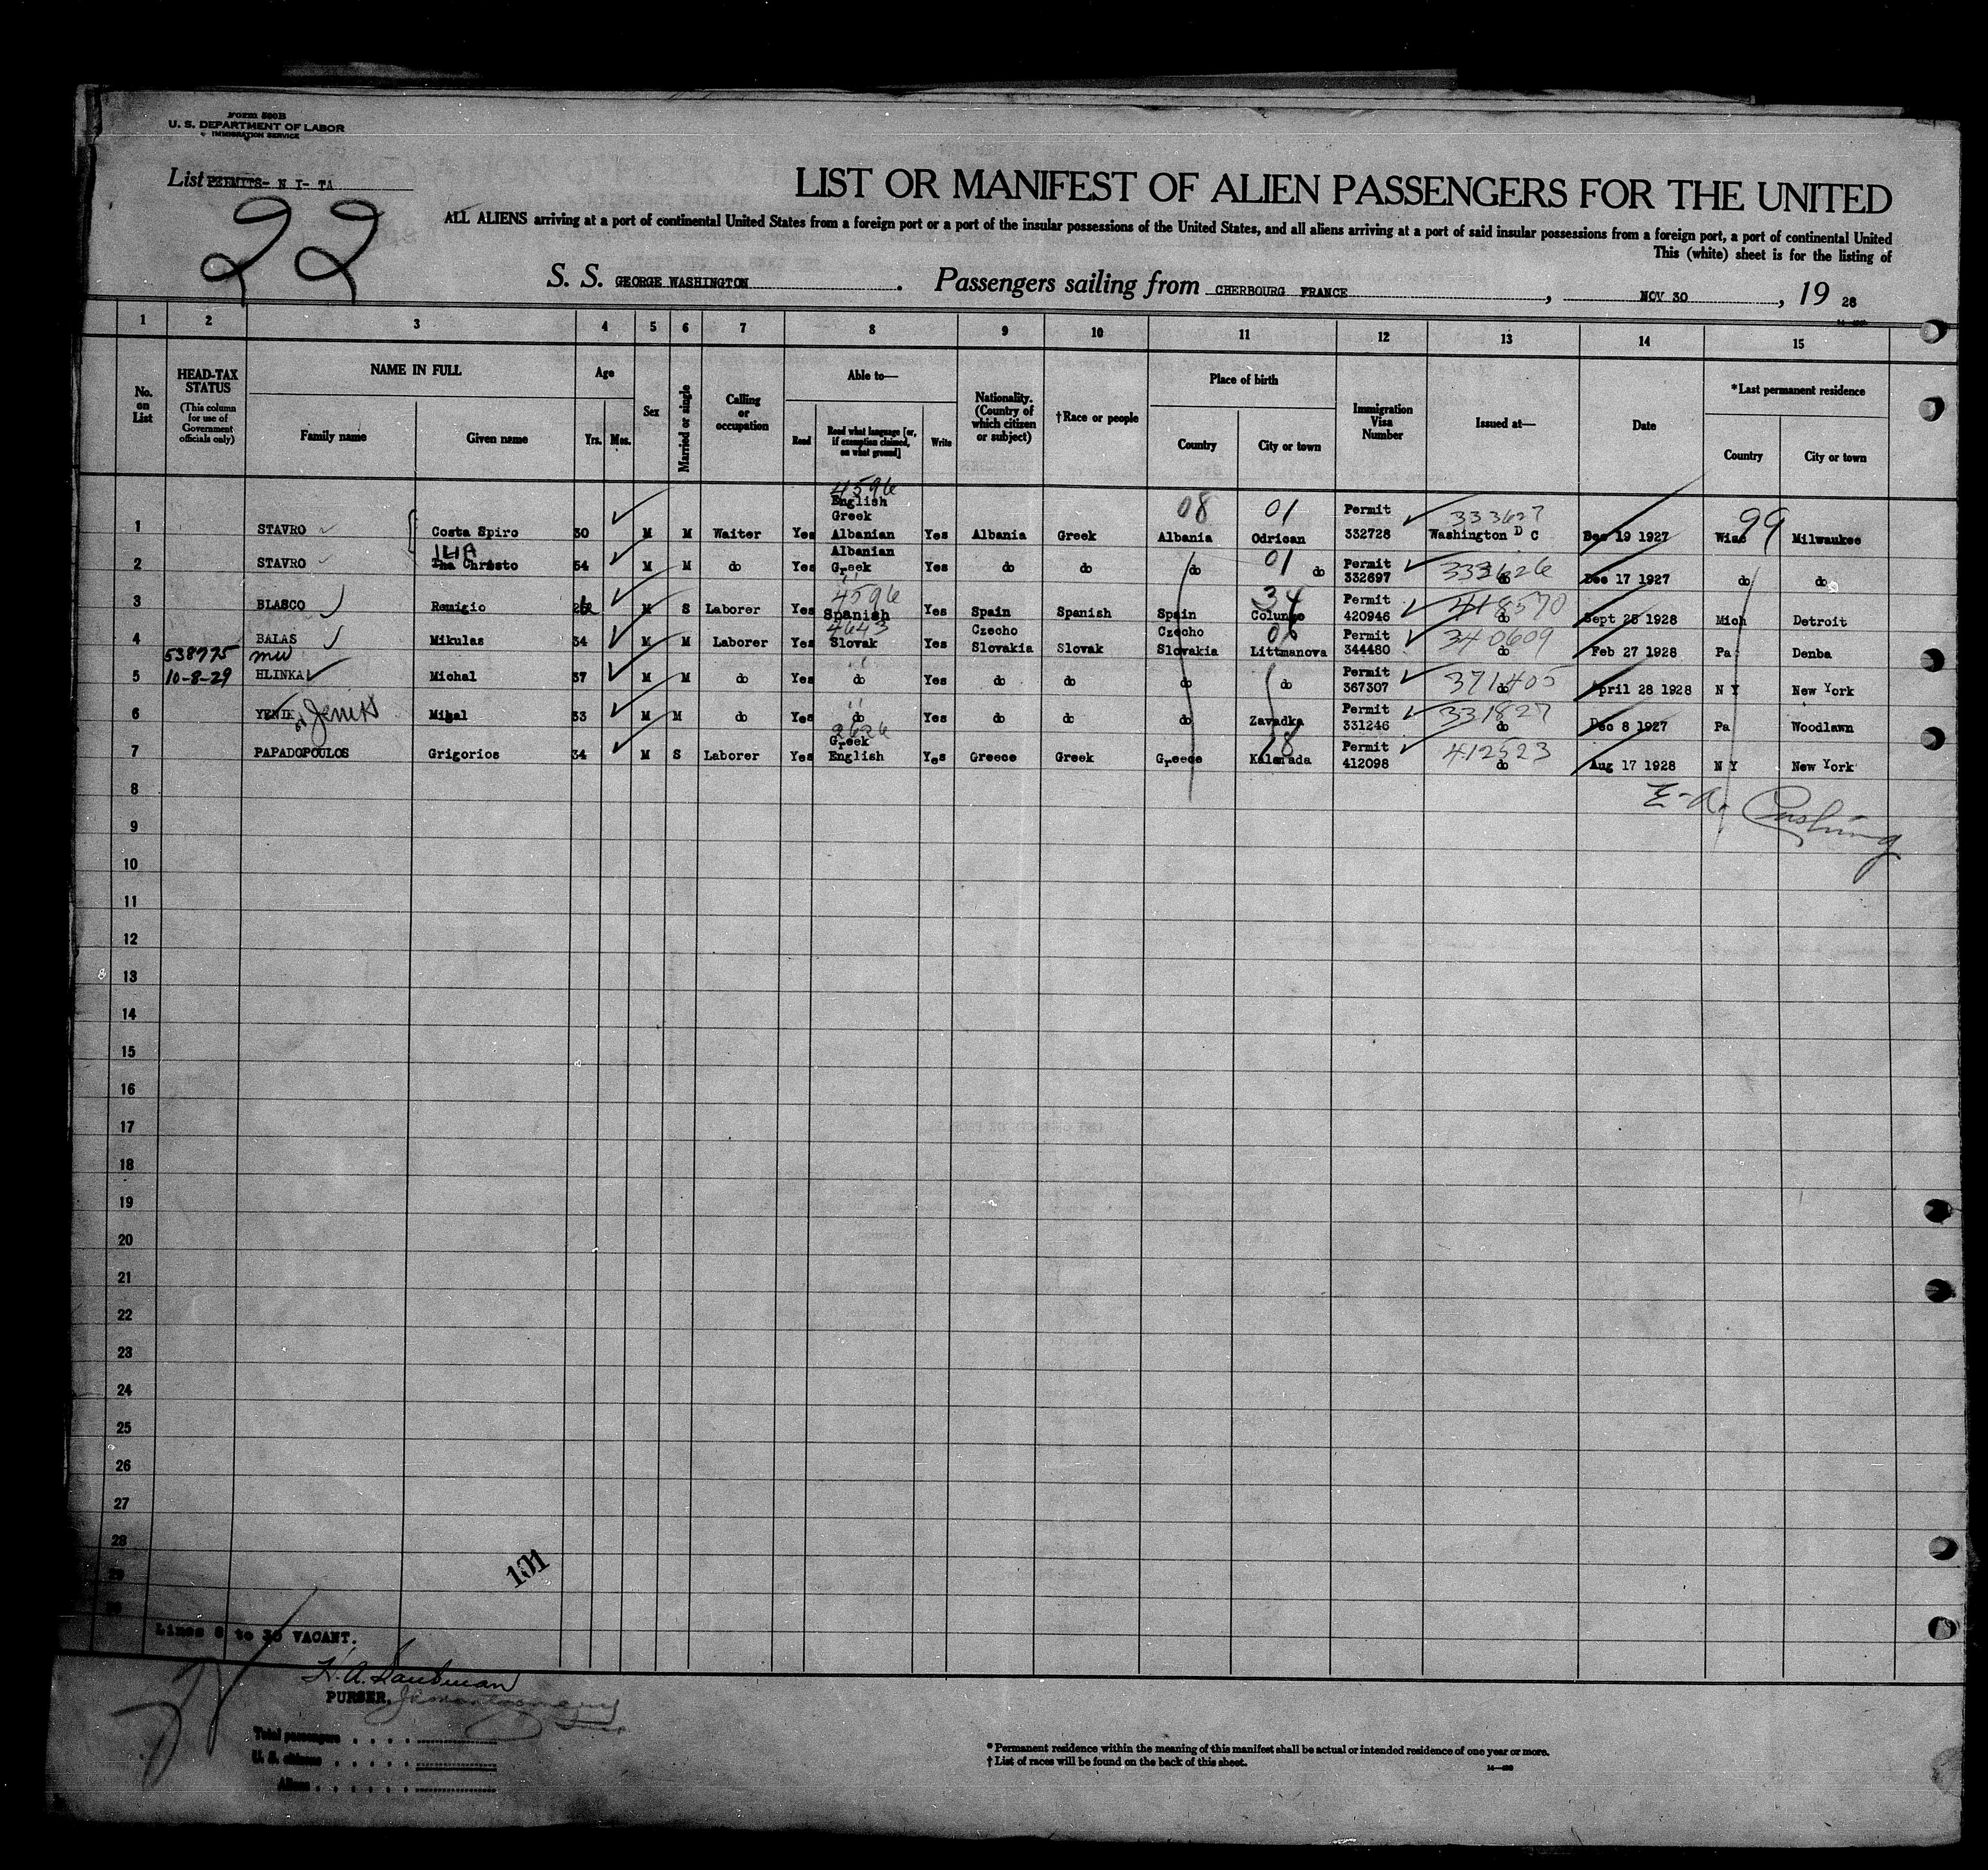 Form 500B
U. S. DEPARTMENT OF LABOR
IMMIGRATION SERVICE
List PERMITS- N I- TA
22
LIST OR MANIFEST OF ALIEN PASSENGERS FOR THE UNITED
ALL ALIENS arriving at a port of continental United States from a foreign port or a port of the insular possessions of the United States, and all aliens arriving at a port of said insular possessions from a foreign port, a port of continental United
This (white) sheet is for the listing of
S. S. GEORGE WASHINGTON. Passengers sailing from CHERBOURG FRANCE, NOV 30, 19 28
1 2 3 4 5 6 7 8 9 10 11 12 13 14 15
No. on List
HEAD-TAX STATUS
(This column for use of Government officials only)
NAME IN FULL
Family name
Given name
Age
Yrs. Mos.
Sex
Married or single
Calling or occupation
Able to—
Read
Read what language [or, if exemption claimed, on what ground]
Write
Nationality. (Country of which citizen or subject)
†Race or people
Place of birth
Country
City or town
Immigration Visa Number
Issued at—
Date
*Last permanent residence
Country
City or town
1 STAVRO Costa Spiro 30 M M Waiter Yes 4596 English Greek Albanian Yes Albania Greek 08 Albania 01 Odrican Permit 332728 333627 Washington D C Dec 19 1927 Wisc 99 Milwaukee
2 STAVRO ILIA Christo 54 M M do Yes Albanian Greek Yes do do do 01 do Permit 332697 333626 do Dec 17 1927 do do
3 BLASCO Remigio M S Laborer Yes 4596 Spanish Yes Spain Spanish Spain 34 Colungo Permit 420946 418570 do Sept 25 1928 Mich Detroit
4 BALAS Mikulas 34 M M Laborer Yes 4643 Slovak Yes Czecho Slovakia Slovak Czecho Slovakia Littmanova Permit 344480 340609 do Feb 27 1928 Pa Denba
538775 mw
5 10-8-29 HLINKA Michal 37 M M do Yes do Yes do do do do Permit 367307 371405 do April 28 1928 N Y New York
6 YENIK or Jenik Mihal 33 M M do Yes do Yes do do do Zavadka Permit 331246 331827 do Dec 8 1927 Pa Woodlawn
7 PAPADOPOULOS Grigorios 34 M S Laborer Yes 2626 Greek English Yes Greece Greek Greece 28 Permit 412098 412523 do Aug 17 1928 N Y New York
8
E-A. Cushing
9
10
11
12
13
14
15
16
17
18
19
20
21
22
23
24
25
26
27
28
29
30
101
Lines 8 to 30 VACANT.
PURSER.
Total passengers
U. S. citizens
Aliens
* Permanent residence within the meaning of this manifest shall be actual or intended residence of one year or more.
† List of races will be found on the back of this sheet.